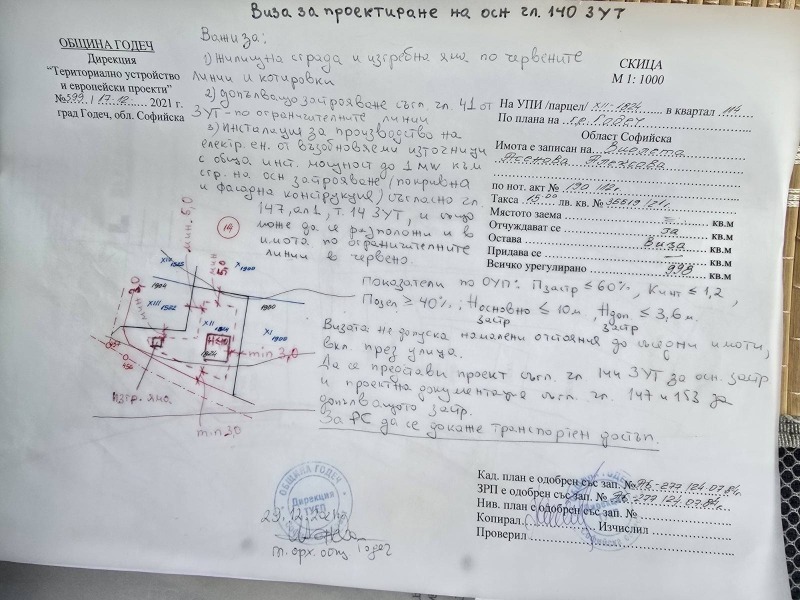 Виза за проектиране на осн чл. 140 ЗУТ
ОБЩИНА ГОДЕЧ
Дирекция
"Териториално устройство
и европейски проекти"
№ 599 / 17.12. 2021 г.
град Годеч, обл. Софийска
Важи за:
1) Жилищна сграда и изгребна яма по червените
линии и котировки
2) допълващо застрояване съгл. чл. 41 от
ЗУТ - по ограничителните линии
3) Инсталация за производство на
електр. ен. от възобновяеми източници
с обща инст. мощност до 1 MW към
сгр. на осн застрояване (покривна
и фасадна конструкция) съгласно чл.
147, ал 1, т. 14 ЗУТ, и също
може да се разположи и в
имота по ограничителните
линии в червено.
СКИЦА
М 1: 1000
На УПИ /парцел/ XII-1824 в квартал 114
По плана на гр. Годеч
Област Софийска
Имота е записан на Виолета
Асенова
по нот. акт № 190
Такса 15.00 лв. кв. №
Мястото заема кв.м
Отчуждават се За кв.м
Остава Виза кв.м
Придава се — кв.м
Всичко урегулирано 998 кв.м
14
мин. 5,0
мин 5,0
мин 3,0
XIV 1525
X 1900
1904
XIII 1522
1900
XII 1824
XI 1900
1824
min 3,0
Изгр. яма
min 3,0
Показатели по ОУП: Пзастр ≤ 60%, Кинт ≤ 1,2,
Позел ≥ 40%, Носновно застр ≤ 10м, Ндоп. застр ≤ 3,6м.
Визата не допуска намалени отстояния до съседни имоти,
вкл. през улица.
Да се представи проект съгл. чл 144 ЗУТ за осн. застр
и проектна документация съгл. чл. 147 и 153 за
допълващото застр.
За РС да се докаже транспортен достъп.
ОБЩИНА ГОДЕЧ
Дирекция
ТУЕП
29.12.2021г.
гл. арх. общ Годеч
Кад. план е одобрен със зап. № РБ-277 / 24.07.84г.
ЗРП е одобрен със зап. № РБ-277 / 24.07.84г.
Нив. план е одобрен със зап. №
Копирал Изчислил
Проверил